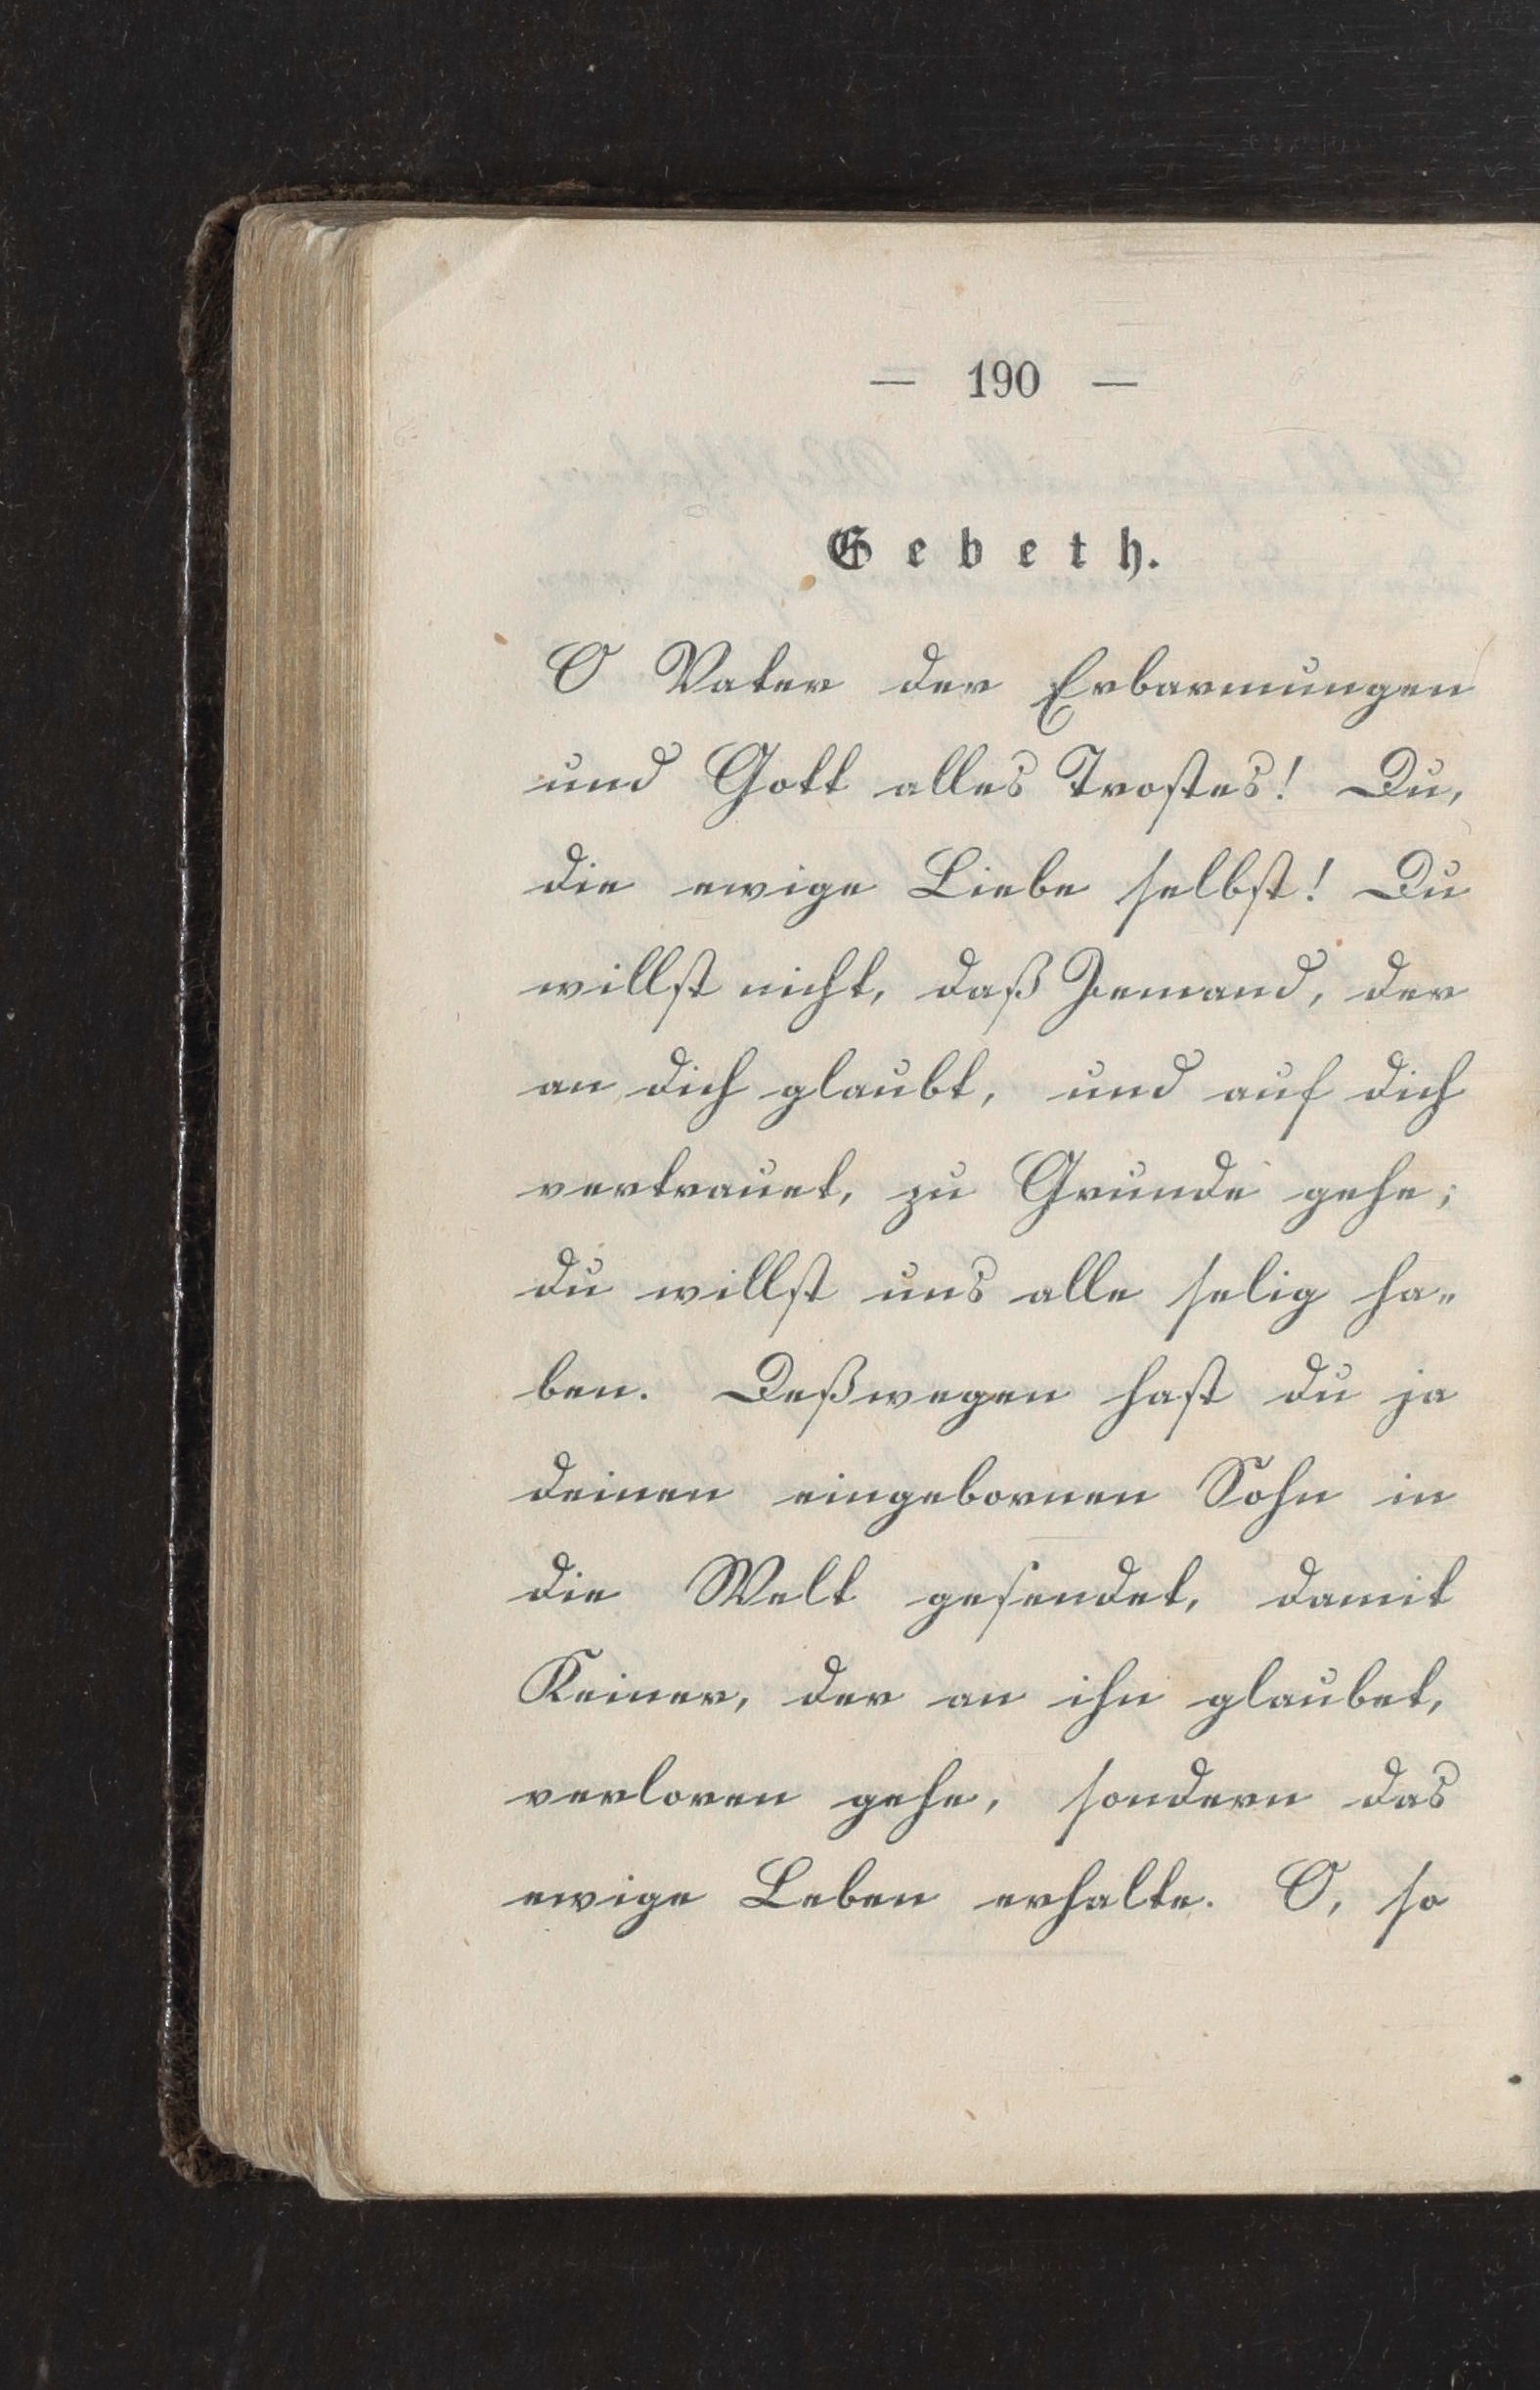 — 190 —
Gebeth.
O Vater der Erbarmungen
und Gott alles Trostes! Du,
die ewige Liebe selbst! Du
willst nicht, daß Jemand, der
an dich glaubt, und auf dich
vertrauet, zu Grunde gehe;
du willst uns alle selig ha-
ben. Deßwegen hast du ja
deinen eingebornen Sohn in
die Welt gesendet, damit
Keiner, der an ihn glaubet,
verloren gehe, sondern das
ewige Leben erhalte. O, so